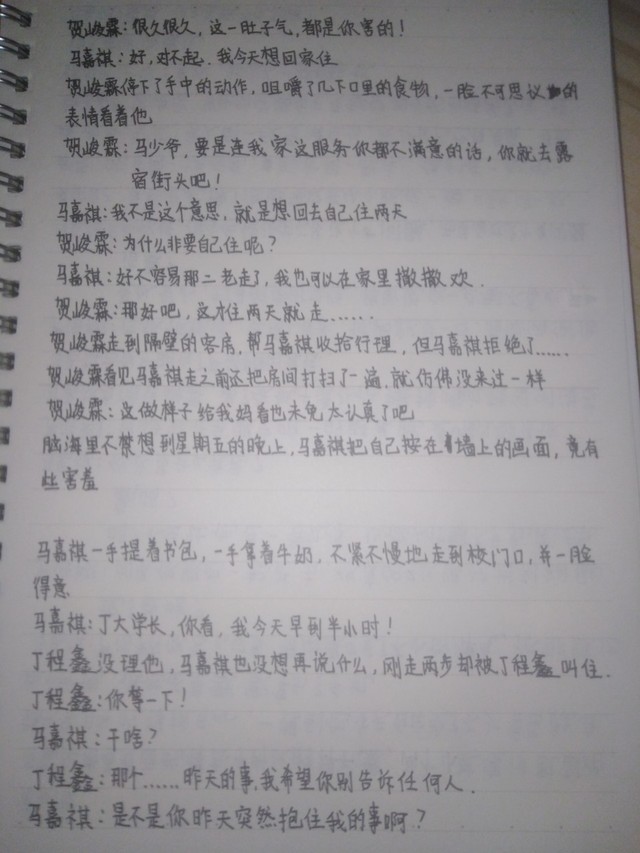 贺峻霖：很久很久，这一肚子气，都是你害的！
马嘉祺：好，对不起．我今天想回家住
贺峻霖停下了手中的动作，咀嚼了几下口里的食物，一脸不可思议的
表情看着他
贺峻霖：马少爷，要是连我家这服务你都不满意的话，你就去露
宿街头吧！
马嘉祺：我不是这个意思，就是想回去自己住两天
贺峻霖：为什么非要自己住呢？
马嘉祺：好不容易那二老走了，我也可以在家里撒撒欢．
贺峻霖：那好吧，这才住两天就走……
贺峻霖走到隔壁的客房，帮马嘉祺收拾行理，但马嘉祺拒绝了……
贺峻霖看见马嘉祺走之前还把房间打扫了一遍，就仿佛没来过一样
贺峻霖：这做样子给我妈看也未免太认真了吧
脑海里不禁想到星期五的晚上，马嘉祺把自己按在墙上的画面，竟有
些害羞
马嘉祺一手提着书包，一手拿着牛奶，不紧不慢地走到校门口，并一脸
得意．
马嘉祺：丁大学长，你看，我今天早到半小时！
丁程鑫没理他，马嘉祺也没想再说什么，刚走两步却被丁程鑫叫住．
丁程鑫：你等一下！
马嘉祺：干啥？
丁程鑫：那个……昨天的事，我希望你别告诉任何人．
马嘉祺：是不是你昨天突然抱住我的事啊？